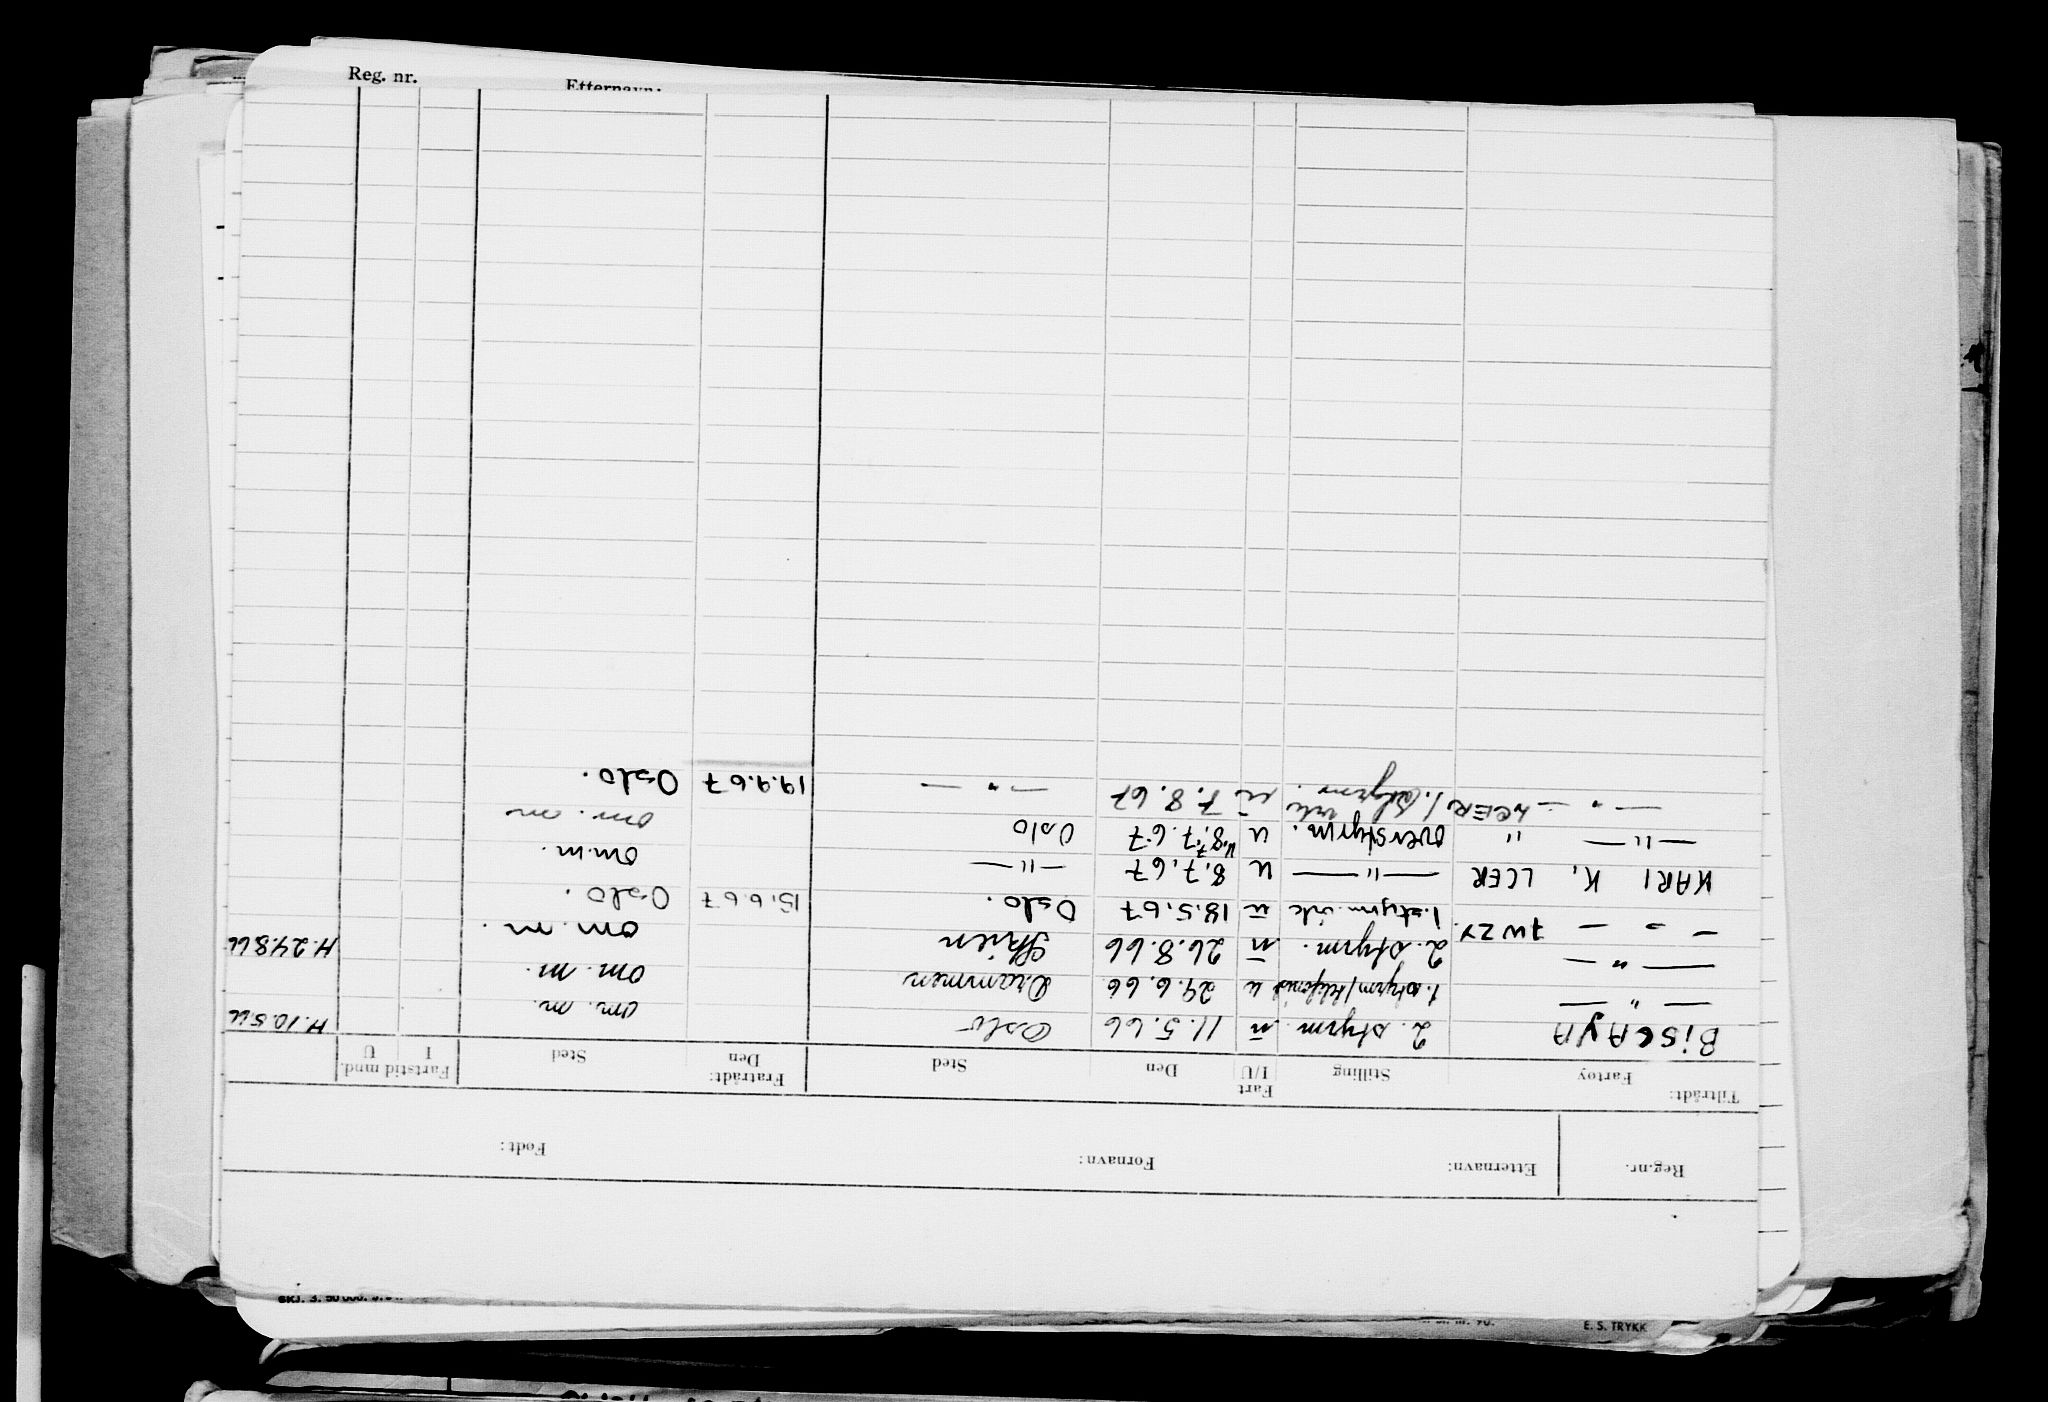 Reg. nr.
Etternavn:
Reg.nr. Etternavn: Fornavn: Født:
Tiltrådt: Fart Fratrådt: Fartstid mnd.
Fartøy Stilling I/U Den Sted Den Sted I U
BiSCAYA 2. styrm. u 11.5.66 Oslo om. m. H.10.5.66
— " — 1. styrm/ u 29.6.66 Drammen om. m.
— " — 2. styrm. u 26.8.66 Skien om. m. H.24.8.66
— " — JWZY. 1. styrm. u 18.5.67 Oslo. 15.6.67 Oslo.
KARI K. LCER — " — u 8.7.67 — " — om.m.
— " — " overstyrm. u 8.7.67 Oslo om. m
— " — LCER 1. styrm. u 7.8.67 — " — 19.9.67 Oslo.
E. S. TRYKK